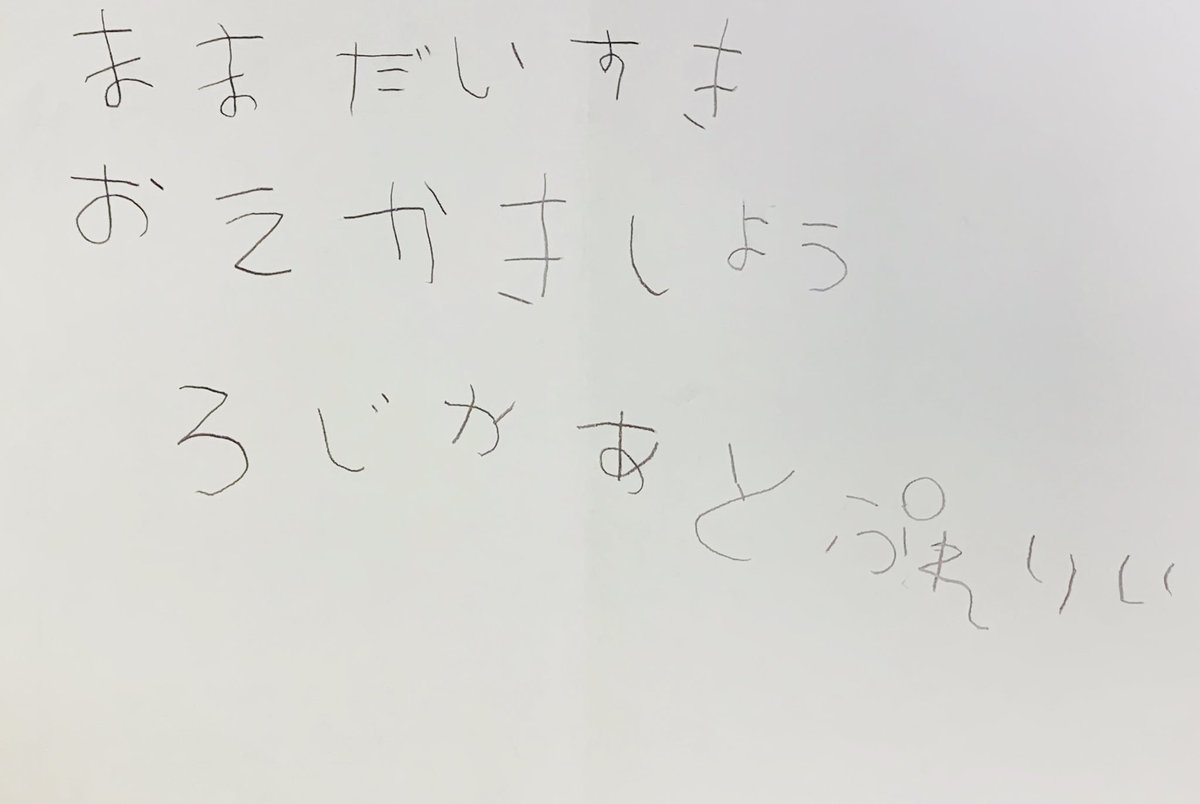 ままだいすき
おえかきしよう
ろじかあとぷれりい